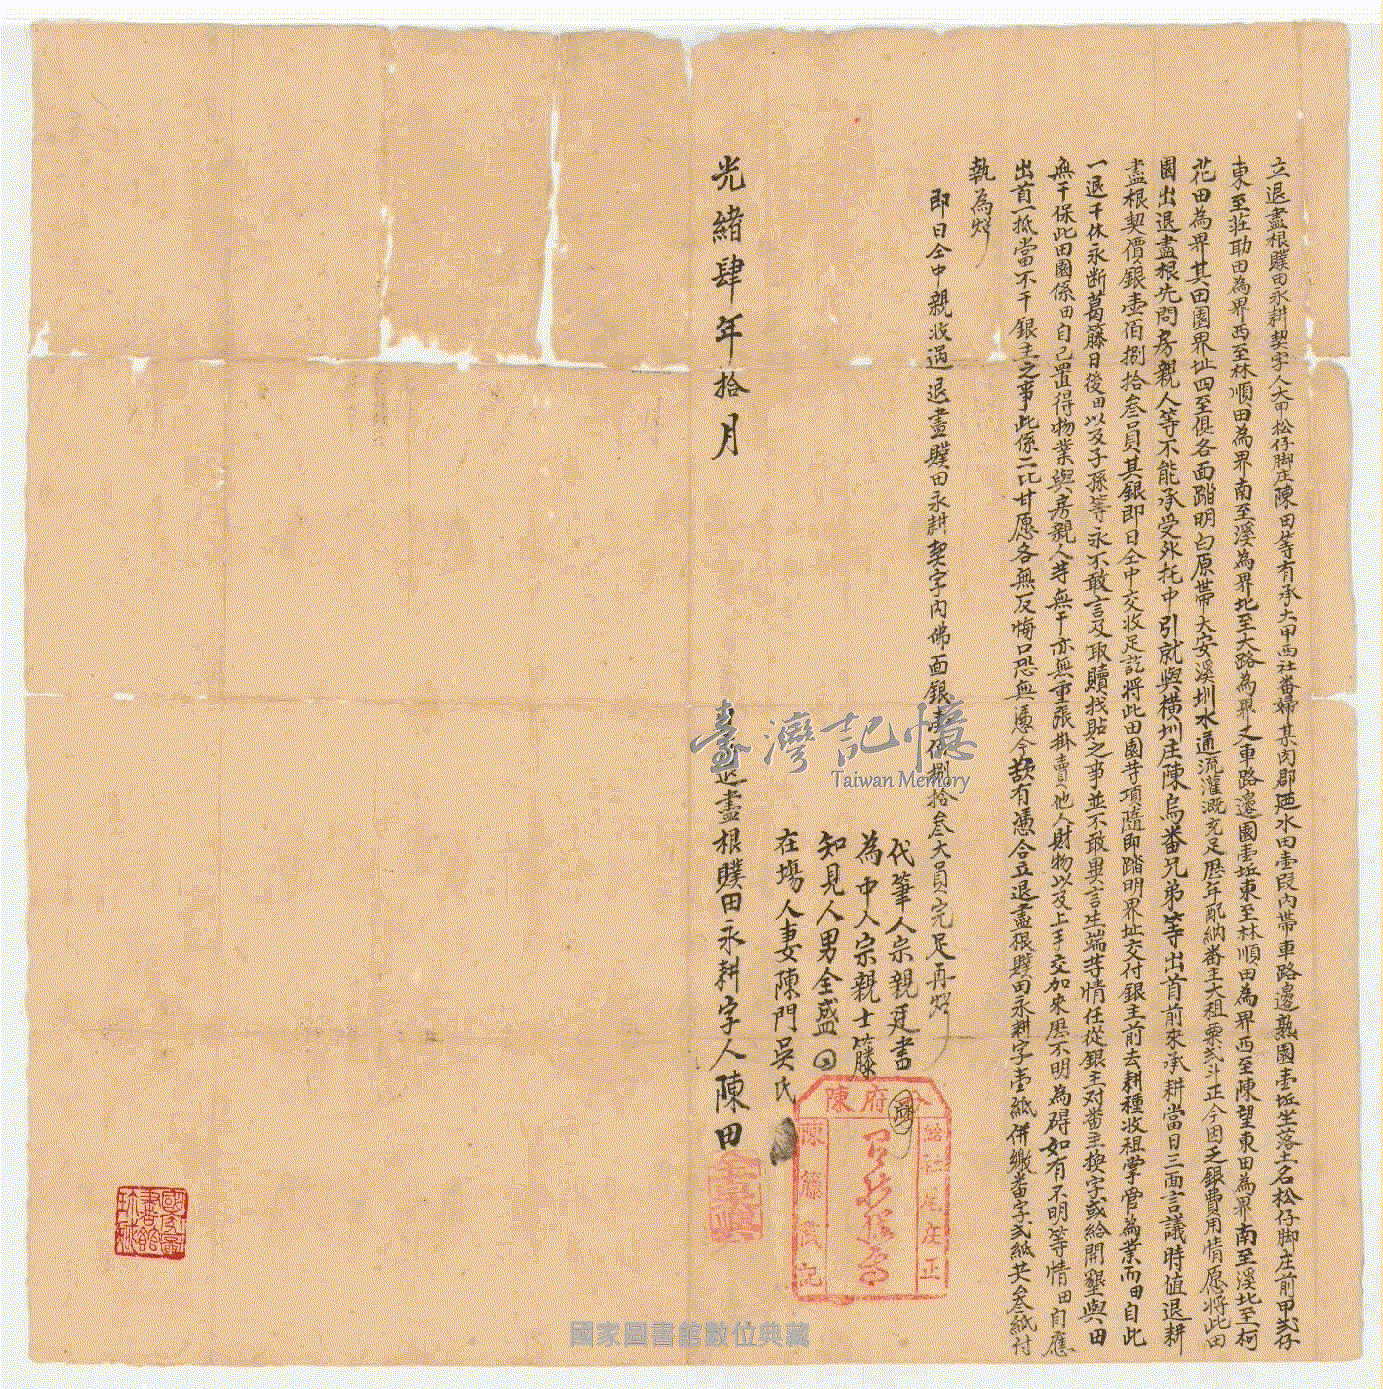 立退盡根贌田永耕契字人大甲松仔脚庄陳田等有承大甲西社番婦某肉郡廼水田壹段內帶車路邊熟園壹坵坐落土名松仔脚庄前甲出仔
東至莊助田為界西至林順田為界南至溪為界北至大路為界又車路邊園壹坵東至林順田為界西至陳望東田為界南至溪北至柯
花田為界其田園界址四至俱各面踏明白原帶大安溪圳水通流灌溉充足歷年配納番主大租粟弍斗正今因乏銀費用情愿將此田
園出退盡根先問房親人等不能承受外托中引就與橫圳庄陳烏番兄弟等出首前來承耕當日三面言議時值退耕
盡根契價銀壹佰捌拾叁員其銀即日仝中交收足訖將此田園等項隨即踏明界址交付銀主前去耕種收租掌管為業而田自此
一退千休永斷葛藤日後田以及子孫等永不敢言及取贖找貼之事並不敢異言生端等情任從銀主對番主換字或給開墾與田
無干保此田園係田自己置得物業與房親人等無干亦無重張掛賣他人財物以及上手交加來歷不明為碍如有不明等情田自應
出首一抵當不干銀主之事此係二比甘愿各無反悔口恐無憑今欲有憑合立退盡根贌田永耕字壹紙併繳番字弍紙共叁紙付
執為炤
即日仝中親收過退盡贌田永耕契字內佛面銀壹佰捌拾叁大員完足再炤
代筆人宗親廷書
為中人宗親士籐
知見人男全盛
在塲人妻陳門吳氏
光緒肆年拾月
退盡根贌田永耕字人陳田
府陳
社尾庄正
陳籐記
臺灣記憶
Taiwan Memory
國家圖書館數位典藏